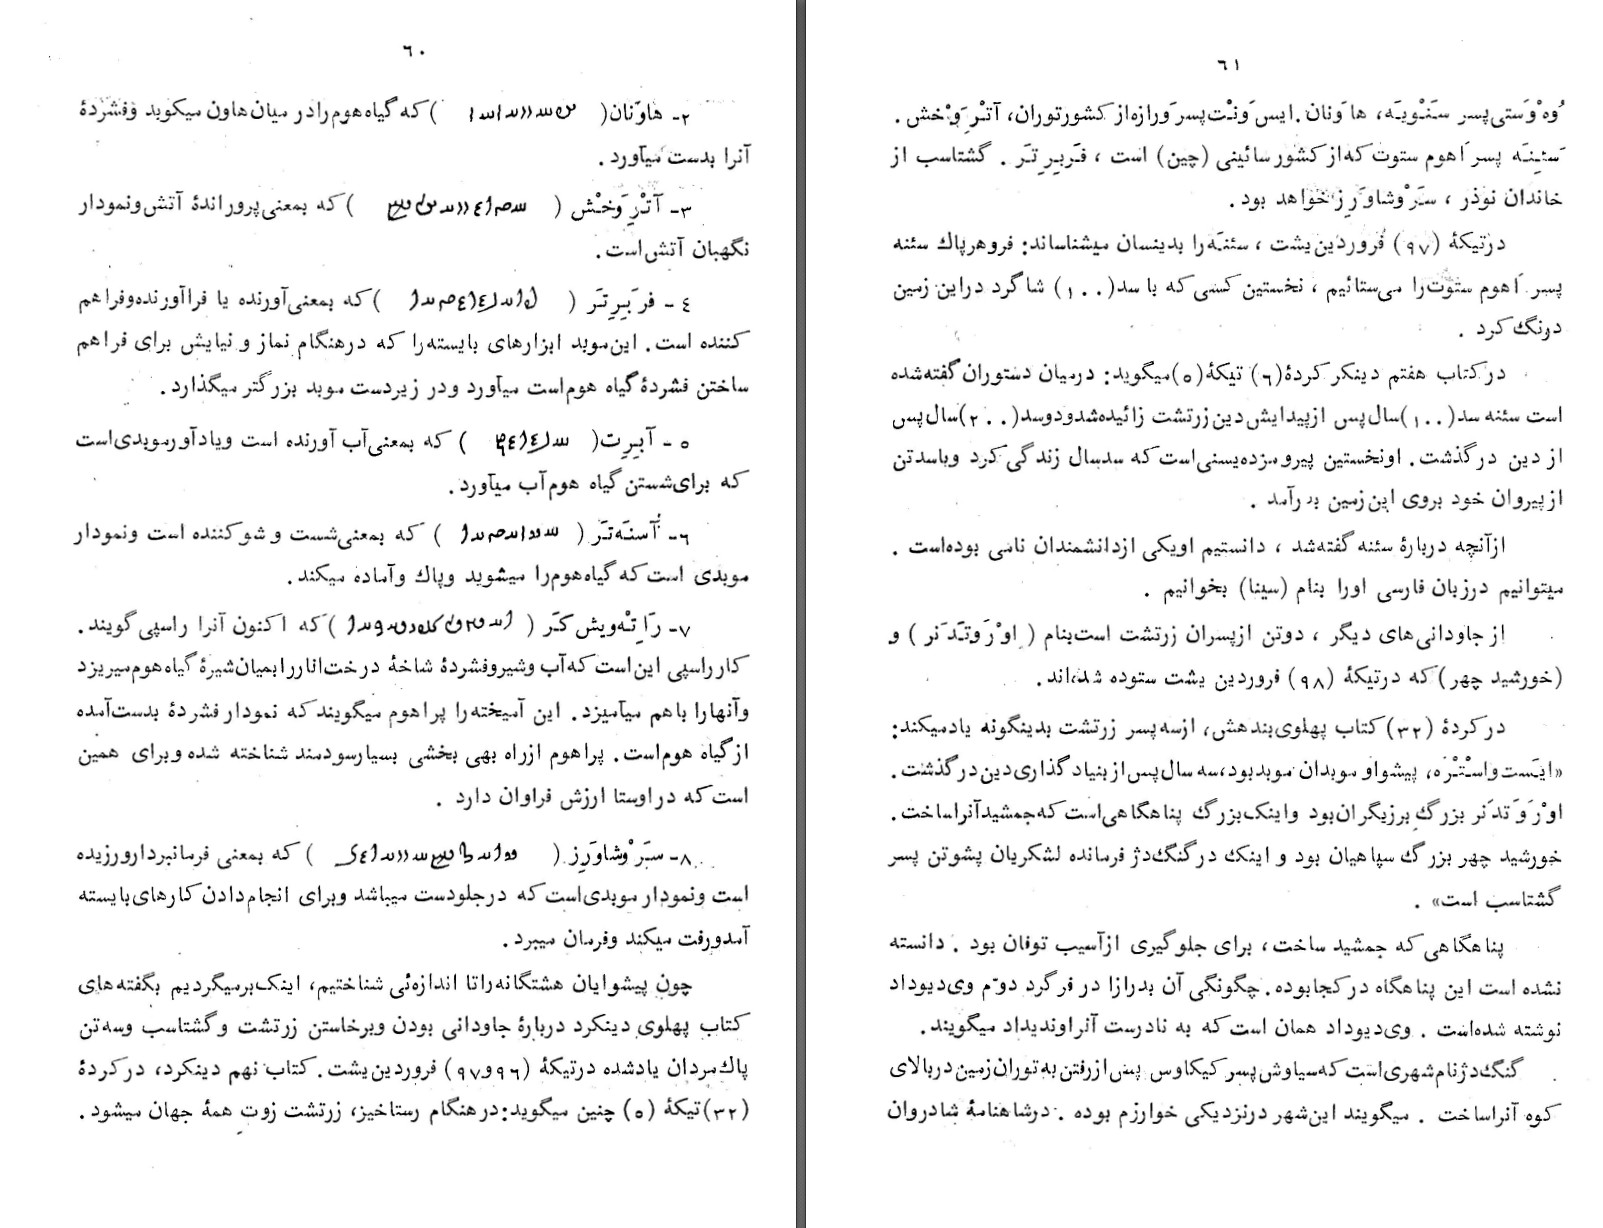 ٦٠
٢- هاوَنان( ) که گیاه هوم را در میان هاون میکوبد وفشردهٔ
آنرا بدست میآورد.
٣- آتْرِوَخْش ( ) که بمعنی پروراندهٔ آتش ونمودار
نگهبان آتش است.
٤- فرَبِرِتَر ( ) که بمعنی آورنده یا فراآورنده وفراهم
کننده است. این موبد ابزارهای بایسته را که درهنگام نماز و نیایش برای فراهم
ساختن فشردهٔ گیاه هوم است میآورد ودر زیردست موبد بزرگتر میگذارد.
٥- آبِرِت( ) که بمعنی آب آورنده است ویادآور موبدی است
که برای شستن گیاه هوم آب میآورد.
٦- آسنَه تَر ( ) که بمعنی شست و شو کننده است ونمودار
موبدی است که گیاه هوم را میشوید وپاك وآماده میکند.
٧- رَاِتْه ویش کَر ( ) که اکنون آنرا راسپی گویند.
کار راسپی این است که آب وشیر وفشردهٔ شاخهٔ درخت انار را بمیان شیرهٔ گیاه هوم میریزد
وآنها را با هم میآمیزد. این آمیخته را پراهوم میگویند که نمودار فشردهٔ بدست آمده
از گیاه هوم است. پراهوم ازراه بهی بخشی بسیار سودمند شناخته شده وبرای همین
است که در اوستا ارزش فراوان دارد .
٨- سرَوْشاوَرِز ( ) که بمعنی فرمانبردار ورزیده
است ونمودار موبدی است که درجلودست میباشد وبرای انجام دادن کارهای بایسته
آمدورفت میکند وفرمان میبرد.
چون پیشوایان هشتگانه را تا اندازه ئی شناختیم، اینک برمیگردیم بگفته های
کتاب پهلوی دینکرد دربارهٔ جاودانی بودن وبرخاستن زرتشت و گشتاسب وسه تن
پاك مردان یادشده درتیکهٔ (٩٦و٩٧) فروردین یشت. کتاب نهم دینکرد، در کردهٔ
(٣٢) تیکهٔ (٥) چنین میگوید: درهنگام رستاخیز، زرتشت زوت همهٔ جهان میشود.
٦١
وُهْوَستی پسر سنَوْیه، هاوَنان. ایس وَنْت پسر وَرازه از کشور توران، آتْرِوَخْش.
سَئِنه پسر اَهوم ستوت که از کشور سائینی (چین) است ، فرَبِرِتَر . گشتاسب از
خاندان نوذر ، سرَوْشاوَرِز خواهد بود.
درتیکهٔ (٩٧) فروردین یشت ، سئنه را بدینسان میشناساند: فروهر پاك سئنه
پسر اَهوم ستوت را می ستائیم ، نخستین کسی که با سد(١٠٠) شاگرد دراین زمین
درنگ کرد .
در کتاب هفتم دینکر کردهٔ(٦) تیکهٔ(٥)میگوید: درمیان دستوران گفته شده
است سئنه سد(١٠٠)سال پس ازپیدایش دین زرتشت زائیده شد ودوسد(٢٠٠)سال پس
از دین درگذشت. او نخستین پیرو مزده یسنی است که سدسال زندگی کرد وباسدتن
ازپیروان خود بروی این زمین بدرآمد .
ازآنچه دربارهٔ سئنه گفته شد ، دانستیم اویکی ازدانشمندان نامی بوده است .
میتوانیم درزبان فارسی اورا بنام (سینا) بخوانیم .
از جاودانی های دیگر ، دوتن ازپسران زرتشت است بنام (اوْرْوَتَدْنَر) و
(خورشید چهر) که درتیکهٔ (٩٨) فروردین یشت ستوده شده اند.
در کردهٔ (٣٢) کتاب پهلوی بندهش، ازسه پسر زرتشت بدینگونه یاد میکند:
«ایسَت واسْتْره، پیشوا و موبدان موبد بود، سه سال پس از بنیاد گذاری دین درگذشت.
اوْرْوَتَدْنَر بزرگ برزیگران بود واینک بزرگ پناهگاهی است که جمشید آنرا ساخت.
خورشید چهر بزرگ سپاهیان بود و اینک درگنگ دژ فرمانده لشکریان پشوتن پسر
گشتاسب است» .
پناهگاهی که جمشید ساخت، برای جلوگیری ازآسیب توفان بود . دانسته
نشده است این پناهگاه درکجا بوده. چگونگی آن بدرازا در فرگرد دوّم وی دیوداد
نوشته شده است . وی دیوداد همان است که به نادرست آنرا وندیداد میگویند.
گنگ دژ نام شهری است که سیاوش پسر کیکاوس پس ازرفتن به توران زمین دربالای
کوه آنرا ساخت . میگویند این شهر درنزدیکی خوارزم بوده . درشاهنامهٔ شادروان